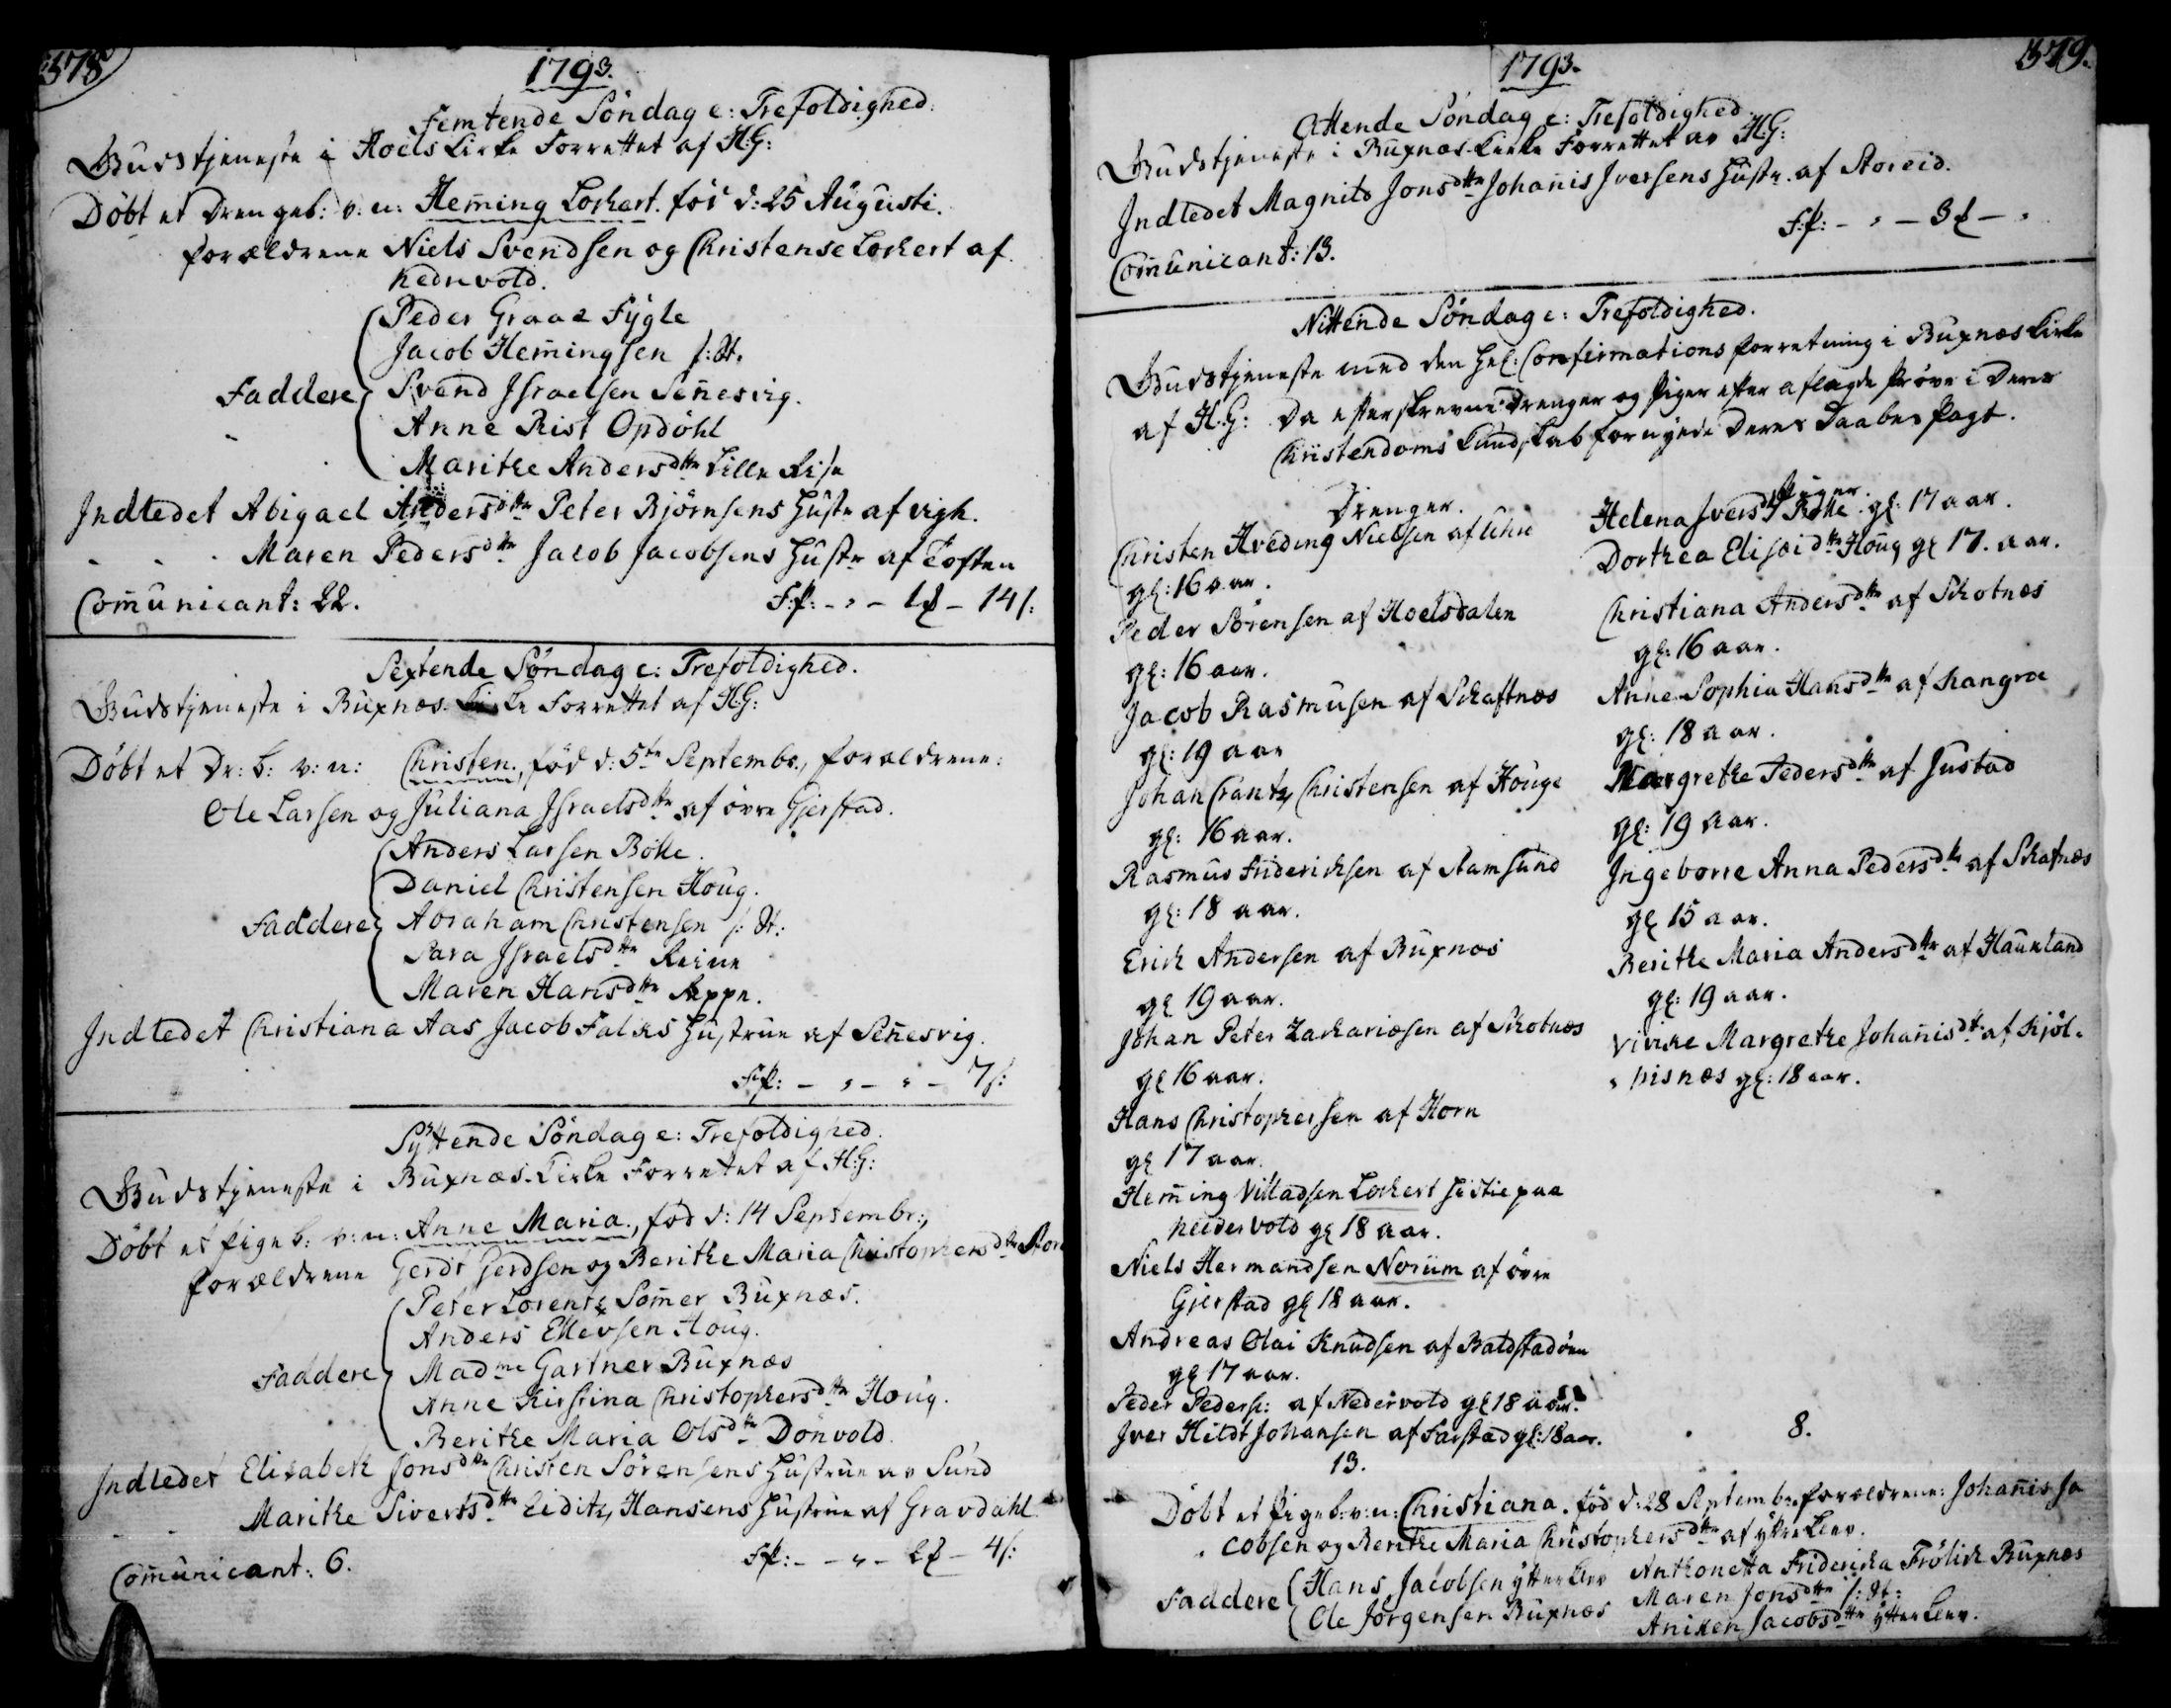 378
1793.
Femtende Söndag e: Trefoldighed.
Gudstjeneste i Hoels Kirke Forrettet af H:G:
Döbt et Drengeb: v: n: Hem̄ing Lockert. föd d: 25 Augusti.
forældrene Niels Svendsen og Christense Lockert af
Peder Graae Fygle
Jacob Hem̄ingsen s: St.
Faddere Svend Jsraelsen Sen̄esvig.
Anne Rist Opdöhl
Marithe Andersdtr Lille Reise
Indledet Abigael Andersdtr Peter Björnsens Hustr af vigh.
Maren Pedersdtr Jacob Jacobsens Hustr af Toften
Com̄unicant: 22.
14 s:
Sextende Söndag e: Trefoldighed.
Gudstjeneste i Buxnæs Kirke Forrettet af H:G:
Döbt et Dr: b: v: n: Christen., föd d: 5te Septembr., forældrene:
Ole Larsen og Juliana Jsraelsdtr af övre Gjerstad.
Anders Larsen Bölle.
Daniel Christensen Houg.
Faddere Abraham Christensen s: St:
Sara Jsraelsdtr Reine
Maren Hansdtr Reppe.
Indledet Christiana Aas Jacob Falchs Hustrue af Sen̄esvig.
7 s:
Syttende Söndag e: Trefoldighed.
Gudstjeneste i Buxnæs Kirke Forrettet af H:G:
Döbt et Pigeb: v: n: Anne Maria., föd d: 14 Septembr.,
forældrene Gerdt Gerdsen og Berithe Maria Christophersdtr
Peter Lorentz Som̄er Buxnæs.
Anders Ellevsen Houg.
Faddere Madme Gartner Buxnæs
Anne Kirstina Christophersdtr Houg.
Berithe Maria Olsdtr Dönvold.
Indledet Elisabeth Jonsdtr Christen Sörensens Hustrue av Sund
Marithe Sivertsdtr Eiditz Hansens Hustrue af Gravdahl
Com̄unicant: 6.
4 s:
1793.
379.
Attende Söndag e: Trefoldighed.
Gudstjeneste i Buxnæs Kirke Forrettet av H:G:
Indledet Magnild Jonsdtr Johan̄is Jversens Hustr. af Storeid.
Com̄unicant: 13.
Nittende Söndag e: Trefoldighed.
Gudstjeneste med den hel: Confirmations forretning i Buxnæs Kirke
af H:G: Da efterskrevne Drenger og Piger efter aflagde Pröve i Deres
Christendoms Kundskab fornyede Deres Daabes Pagt.
Drenger.
Christen Hveding Nielsen af Uhre
gl: 16 aar.
Peder Sörensen af Hoelsdalen
gl: 16 aar.
Jacob Rasmusen af Skaftnæs
gl: 19 aar
Johan Crantz Christensen af Houge
gl: 16 aar.
Rasmus Friderichsen af Stamsund
gl: 18 aar.
Erich Andersen af Buxnæs
gl 19 aar.
Johan Peter Zachariæsen af Skotnæs
gl 16 aar.
Hans Christophersen af Horn
gl 17 aar.
Hem̄ing Villadsen Lockert paa
gl 18 aar.
Niels Hermandsen Norum af övre
Gjerstad gl 18 aar.
Andreas Olai Knudsen af Baldstadöen
gl 17 aar.
Peder Peders: af Nedervold gl 18 aar.
Jver Hildt Johansen af Farstad gl: 18 aar.
13.
Piger.
Helena Jversdtr Bölle. gl: 17 aar.
Dorthea Elisæidtr Houg gl 17. aar.
Christiana Andersdtr af Skotnæs
gl: 16 aar.
Anne Sophia Hansdtr af Kangroe
gl: 18 aar.
Margrethe Pedersdtr af Justad
gl: 19 aar.
Ingeborre Anna Pedersdtr af Skafnæs
gl 15 aar.
Berithe Maria Andersdtr af Haukland
gl: 19 aar.
Viviche Margrethe Johan̄isdtr af Kjöl-
pisnæs gl: 18 aar.
8.
Döbt et Pigeb: v: n: Christiana. föd d: 28 Septembr. forældrene: Johan̄is Ja
cobsen og Berithe Maria Christophersdtr af ytterLeer.
Faddere Hans Jacobsen ytterLeer Anthonetta Fridericha Frölich Buxnæs
Ole Jörgensen Buxnæs Maren Jonsdtr s: St:
Aniken Jacobsdtr ytterLeer.